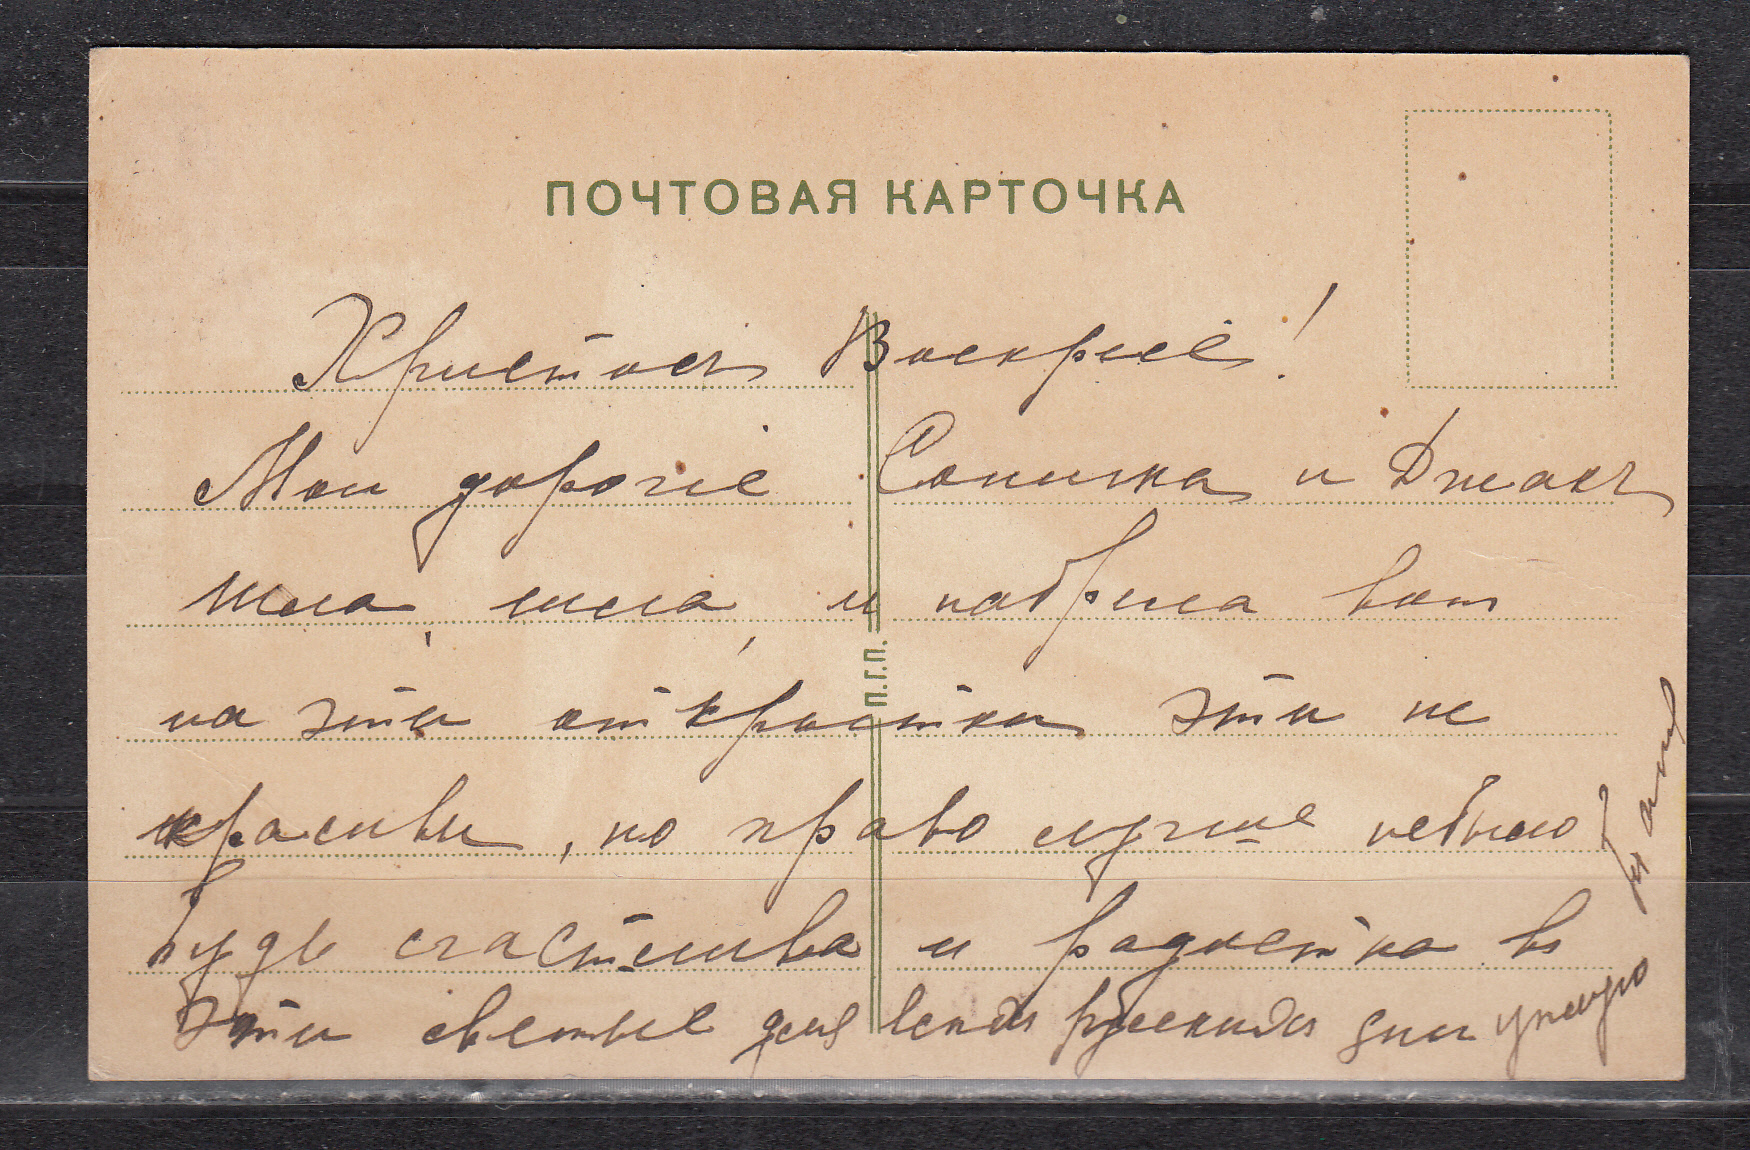 ПОЧТОВАЯ КАРТОЧКА
Христосъ Воскресе!
Мои дорогiе Соничка и Джакъ
шла, шла, и набрела вот
на эти открытки эти не
красивы, но право лучше небыло
Будь счастлива и радостна въ
эти светлые для всехъ русскихъ дни целую
П.Г.П.